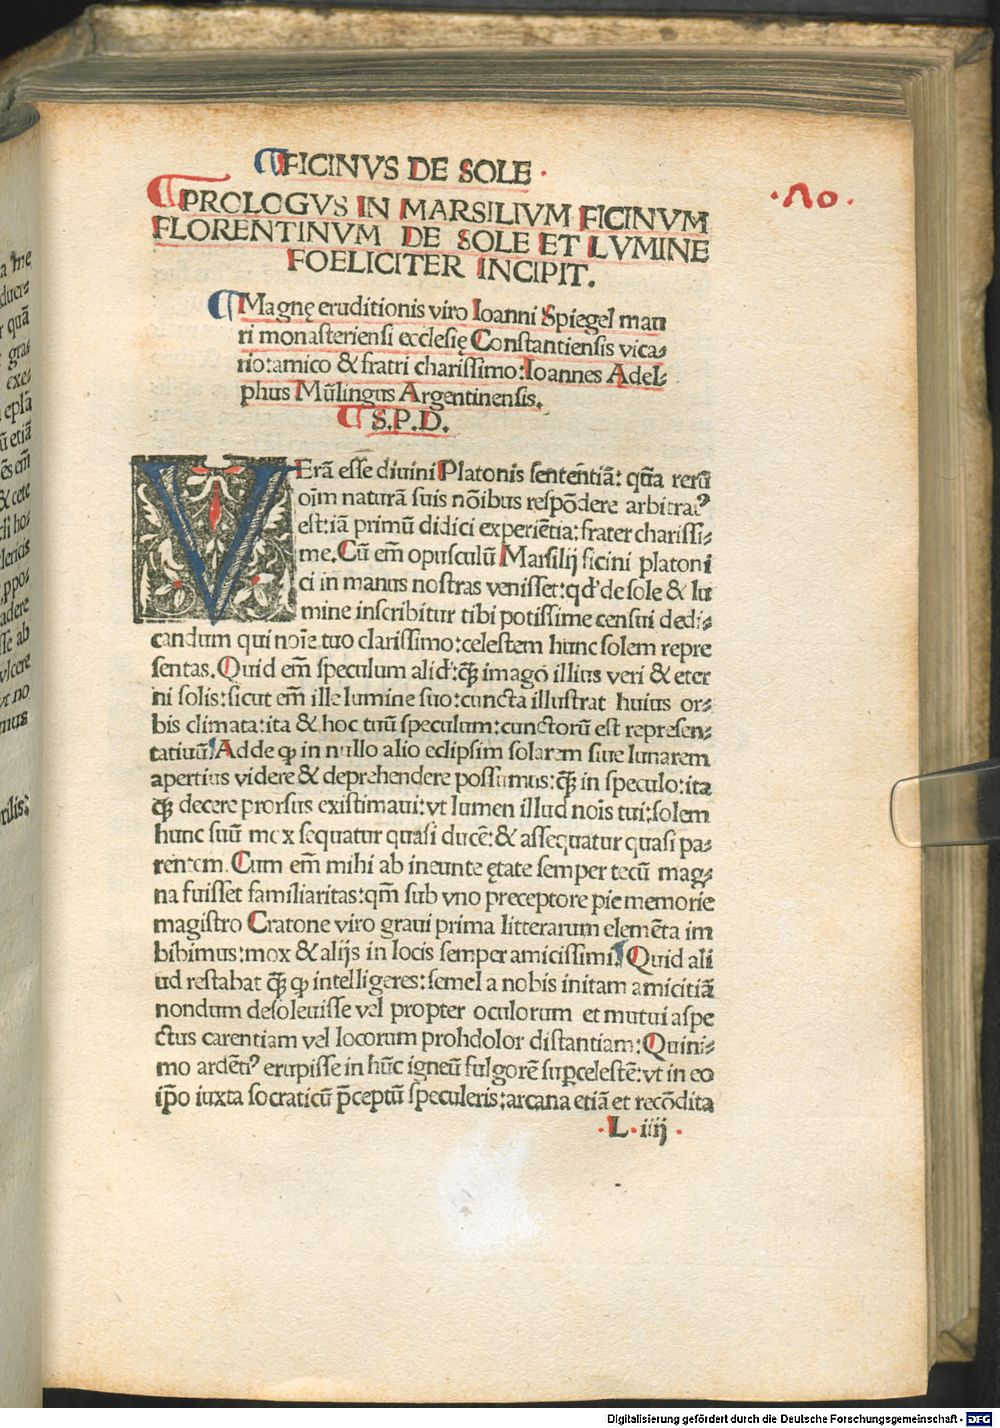 ¶FICINVS DE SOLE.
·Λo·
¶PROLOGVS IN MARSILIVM FICINVM
FLORENTINVM DE SOLE ET LVMINE
FOELICITER INCIPIT.
¶Magnę eruditionis viro Ioanni Spiegel mau
ri monasteriensi ecclesię Constantiensis vica⸗
rio:amico & fratri charissimo:Ioannes Adel⸗
phus Mũlingus Argentinensis.
¶S.P.D.
VErã esse diuini Platonis sententiã: qũa rerũ
oĩm naturã suis nõibus respõdere arbitratꝰ
est:iã primũ didici experiẽtia:frater charissi⸗
me.Cũ em̃ opusculũ Marsilij ficini platoni
ci in manus nostras venisset:qd' de sole & lu
mine inscribitur tibi potissime censui dedi⸗
candum qui noĩe tuo clarissimo:celestem hunc solem repre
sentas.Quid em̃ speculum alid':q̃ꝫ imago illius veri & eter
ni solis:sicut em̃ ille lumine suo:cuncta illustrat huius or⸗
bis climata:ita & hoc tuũ speculum:cunctorũ est represen⸗
tatiuũ¶Adde ꝙ in nullo alio eclipsim solarem siue lunarem
apertius videre & deprehendere possumus:q̃ꝫ in speculo:ita
q̃ꝫ decere prorsus existimaui:vt lumen illud noĩs tui:solem
hunc suũ mox sequatur quasi ducẽ:& assequatur quasi pa⸗
rentem.Cum em̃ mihi ab ineunte ętate semper tecũ mag⸗
na fuisset familiaritas:qm̃ sub vno preceptore pie memorie
magistro Cratone viro graui prima litterarum elemẽta im
bibimus:mox & alijs in locis semper amicissimi¶Quid ali
ud restabat q̃ꝫ ꝙ intelligeres:semel a nobis initam amicitiã
nondum desoleuisse vel propter oculorum et mutui aspe
ctus carentiam vel locorum prohdolor distantiam:Quini⸗
mo ardẽtiꝰ erupisse in hũc igneũ fulgorẽ suꝑcelestẽ:vt in eo
ip̃o iuxta socraticũ p̃ceptũ speculeris:arcana etiã et recõdita
·L·iiij·
a me
diuer⸗
r quã
gra⸗
exe⸗
eplã
ũ etiã
ẽs em̃
& cete
di ho⸗
lericis
ppo⸗
adere
sse ab
vlcere
vt no
mus
Digitalisierung gefördert durch die Deutsche Forschungsgemeinschaft - DFG